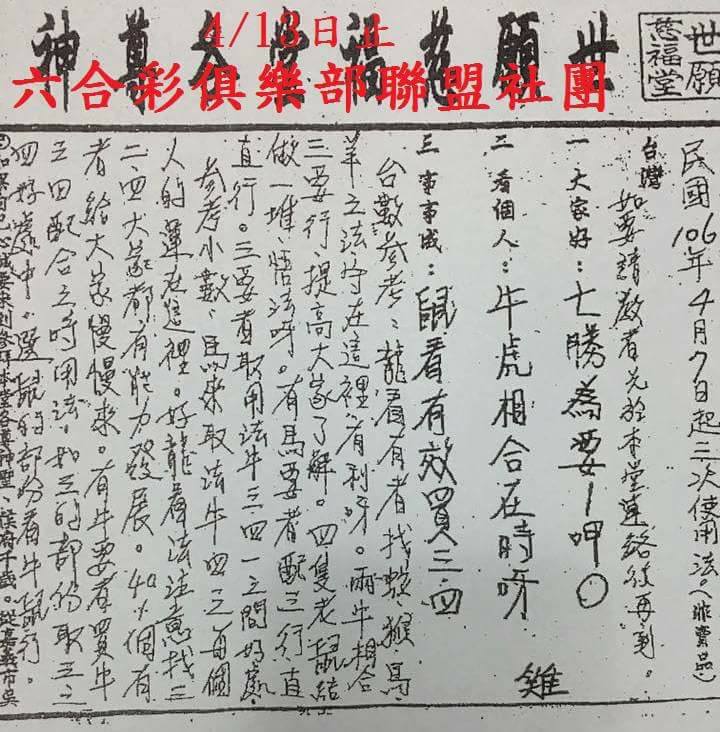 4/13日止
六合彩俱樂部聯盟社團
世願慈福堂各尊神
世願
慈福堂
民國106年4月7日起三次使用法。(非賣品)
台灣 如要請教者先於本堂連絡後再到。
一 大家好：七勝為要1呷0
二 看個人：牛虎相合在時呀
三 事事成：鼠看有效買三四
雞
台數參考：龍看有者找蛇、猴、馬、
羊之法守在這裡、有利呀。兩牛相合
三要行、提高大家了解。四隻老鼠結
做一堆、悟法呀。有馬要者配三行、直
直行。三要者取用法牛三四一之間好處、
參考小數、馬來取法牛四之每個
人的運在這裡。好龍看法注意找三
二四大家都有能力發展。40%個有
者給大家慢慢來。有牛要者買牛
三四配合之時用法、如三的部份取五之
四好處中。選鼠的部份看牛鼠行。